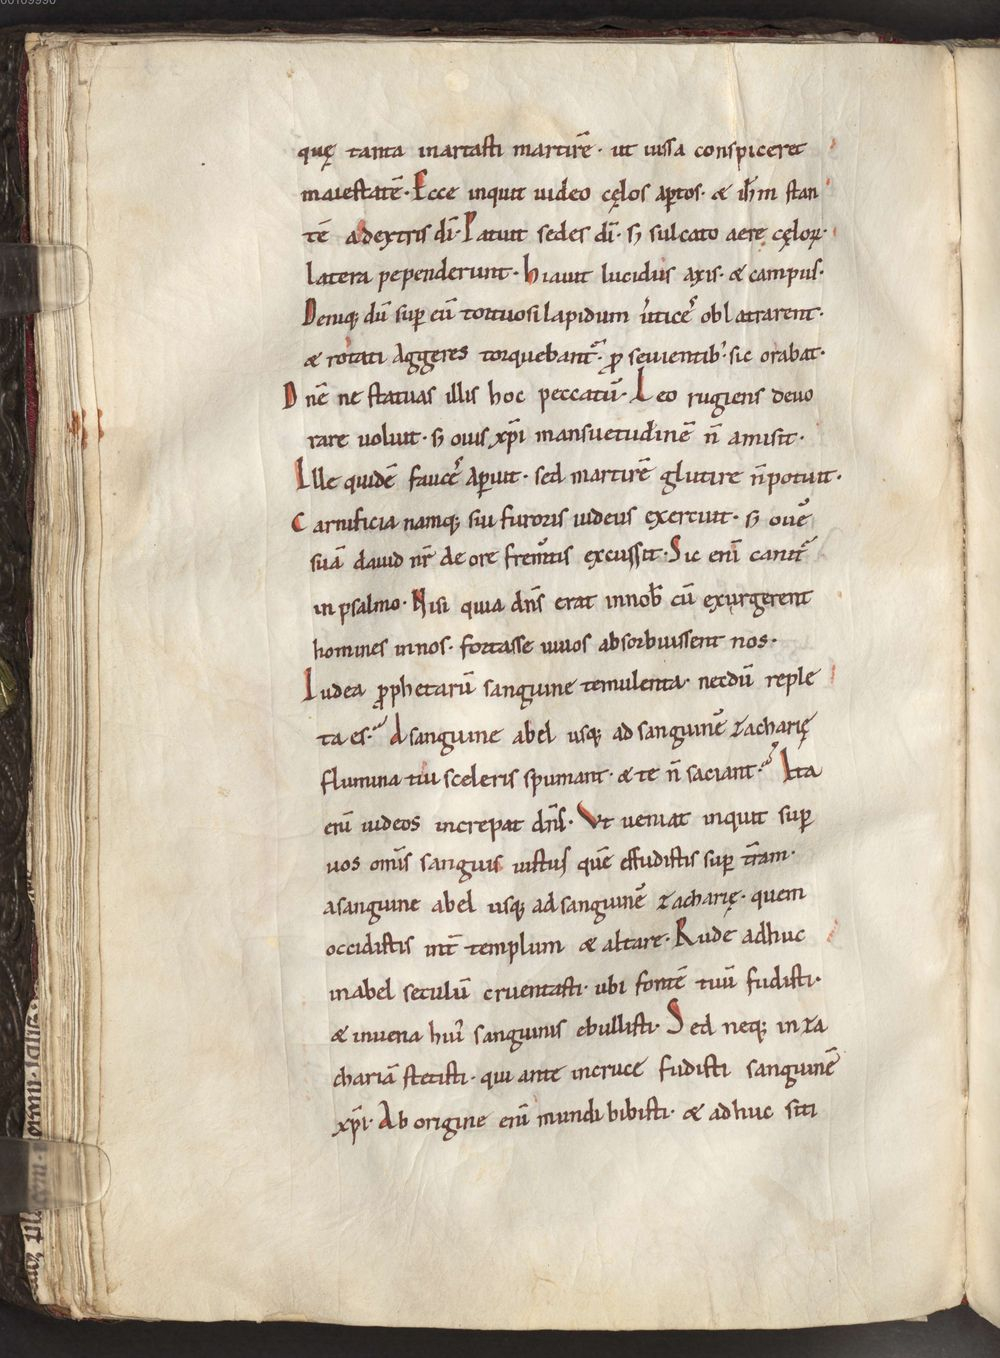 quę tanta inartasti martirē · ut iussa conspiceret
maiestatē · Ecce inquit uideo cęlos aptos · & ih̄m stan
tē adextris dī · Patuit sedes dī · s; sulcato aere cęloꝝ ·
latera pependerunt · hiauit lucidus axis · & campus ·
Deniq; dū sup eū tortuosi lapidum uticē oblatrarent ·
& rotati Aggeres torquebant · ꝓ seuientib' · sic orabat ·
Dne ne statuas illis hoc peccatū · Leo rugiens deuo
rare uoluit · s; ouis xp̄i mansuetudinē n̄ amisit ·
Ille quidē faucē apuit · sed martirē glutire n̄ potuit ·
Carnificia namq; sui furoris iudeus exercuit · s; ouē
suā dauid nr̄ de ore frem̄tis excussit · Sic enī canit
in psalmo · Nisi quia dn̄s erat innob̄ cū exurgerent
homines innos · fortasse uiuos absorbuissent nos ·
Iudea ꝓphetarū sanguine temulenta · necdū reple
ta es · A sanguine abel usq; ad sanguinē zacharię
flumina tui sceleris spumant · & te n̄ saciant · Ita
enī iudeos increpat dn̄s · Vt ueniat inquit sup
uos omīs sanguis iustus quē effudistis sup tr̄am ·
asanguine abel usq; ad sanguinē zacharię · quem
occidistis int̄ templum & altare · Rude adhuc
inabel seculū cruentasti · ubi fontē tuū fudisti ·
& inuena hui' sanguinis ebullisti · Sed neq; in za
chariā stetisti · qui ante incruce fudisti sanguinē
xp̄i · Ab origine enī mundi bibisti · & adhuc siti